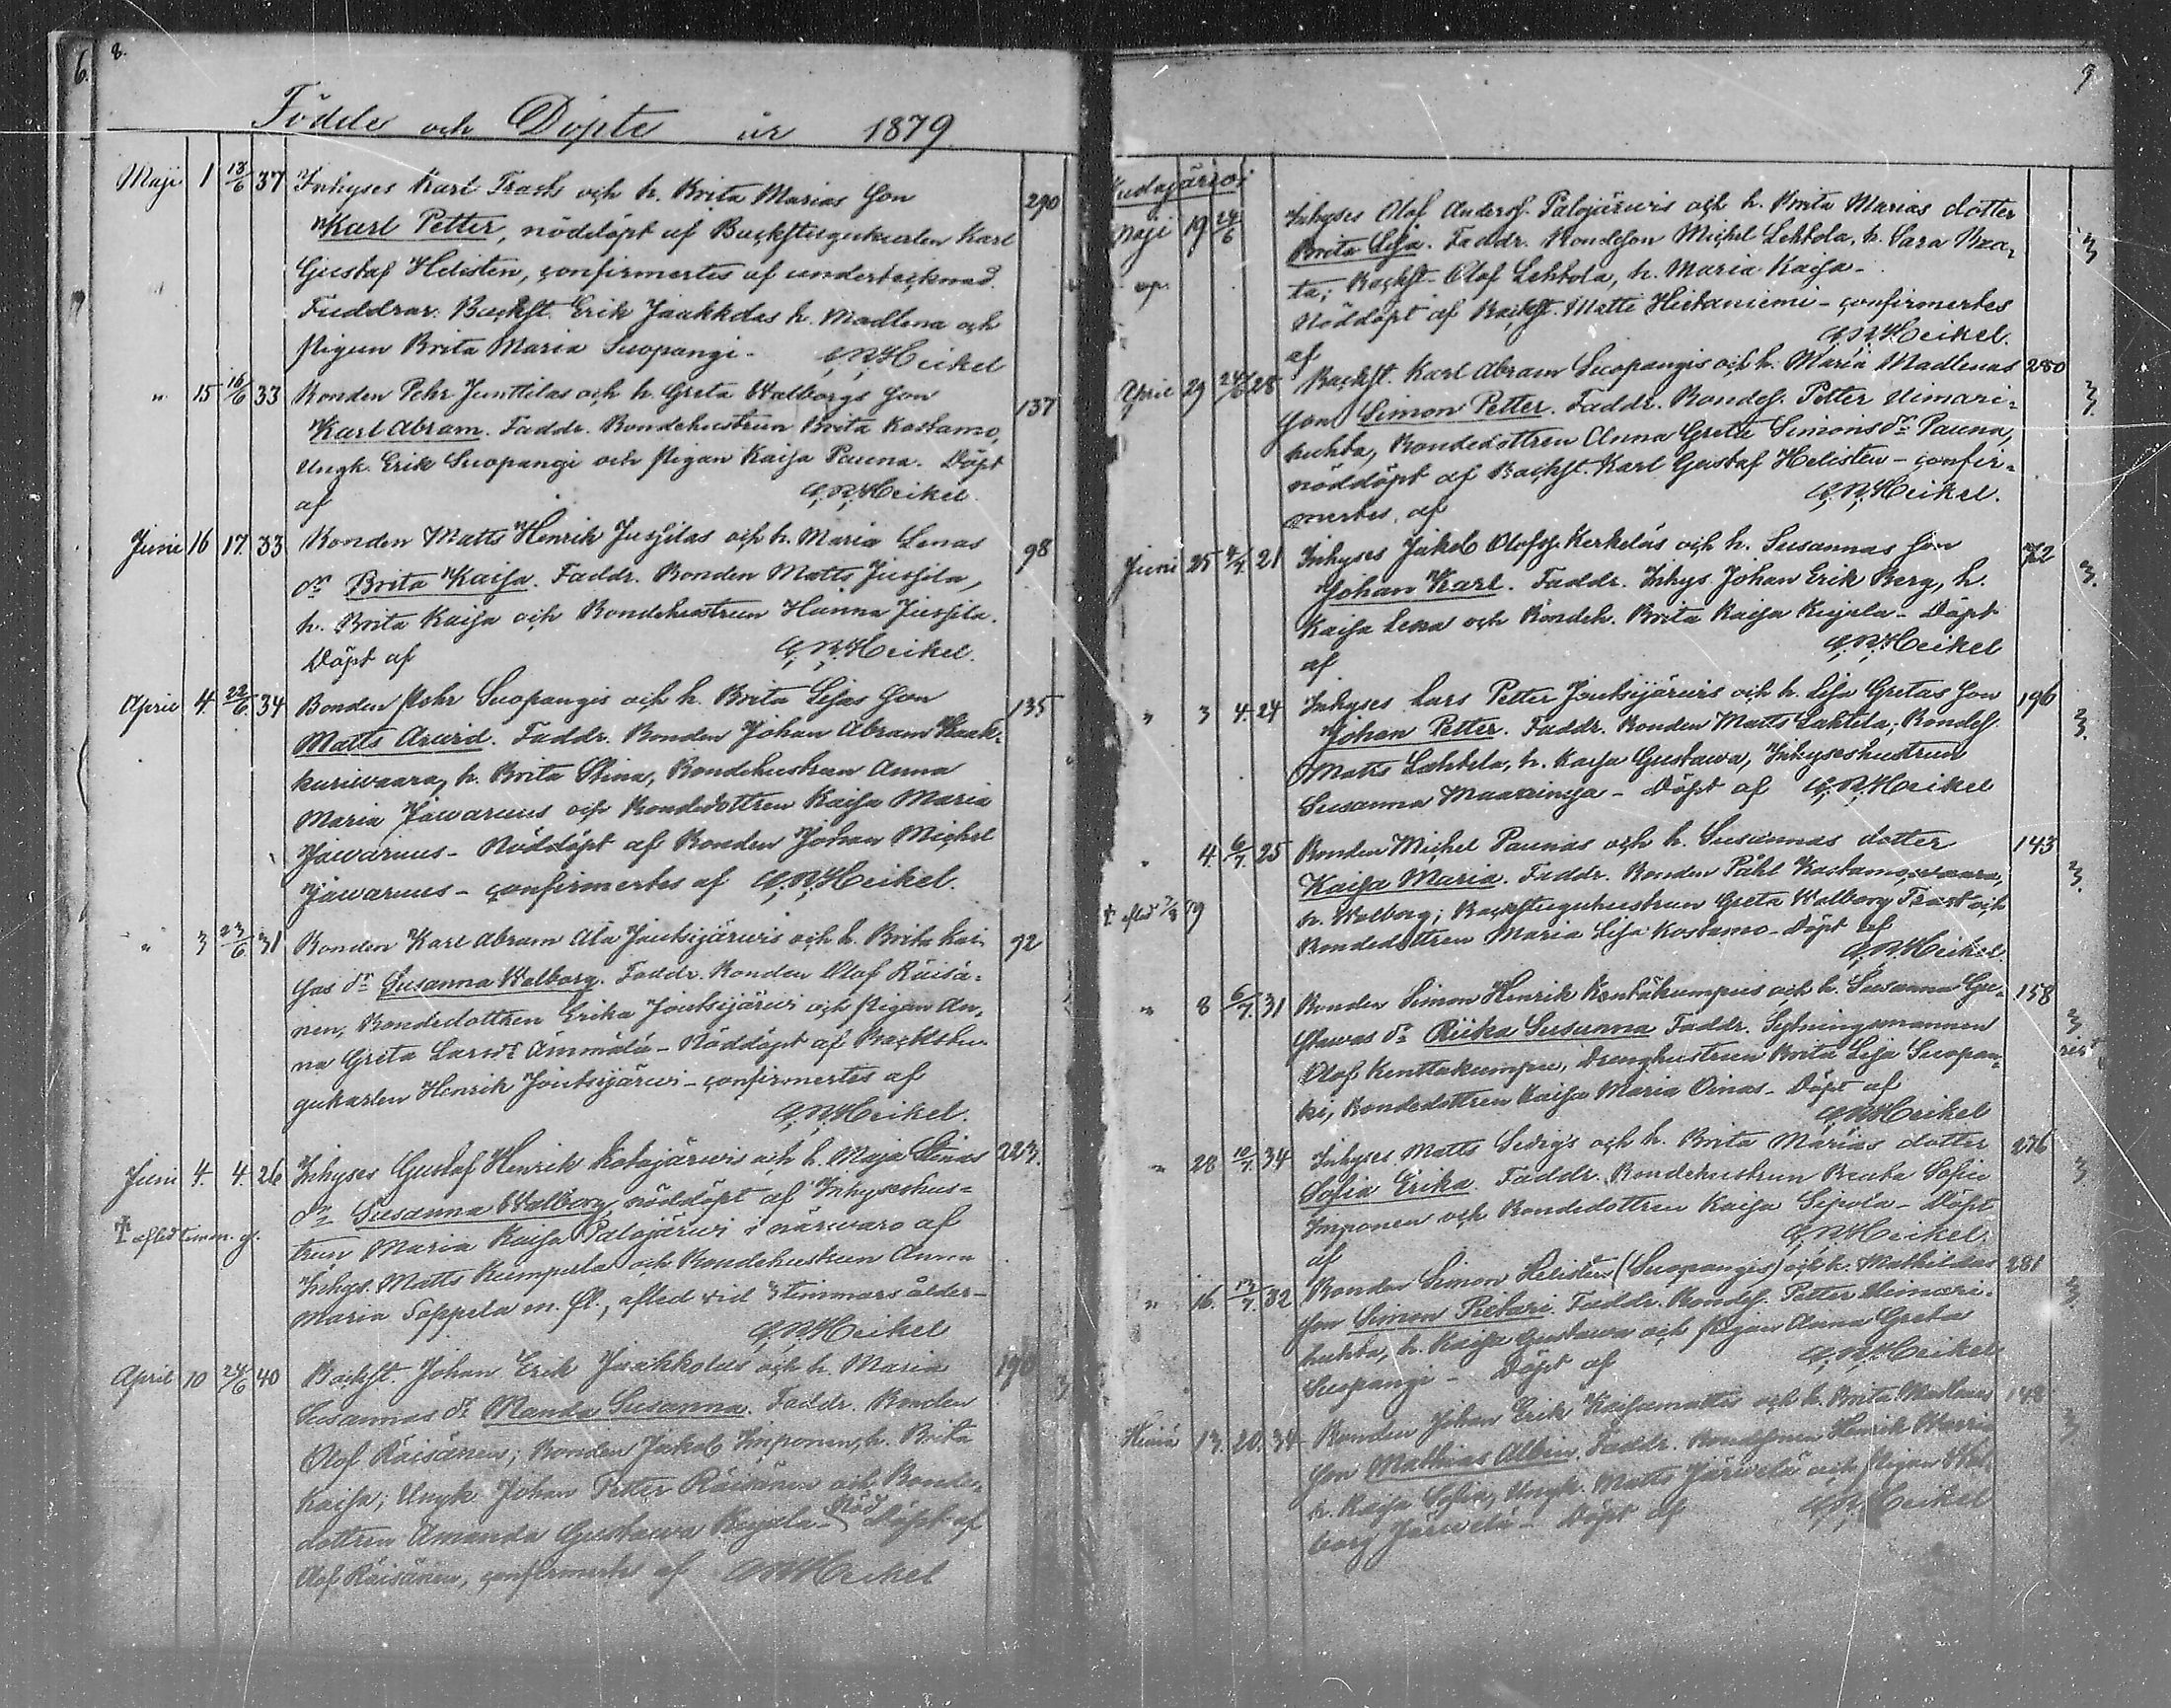 6.
8.
Födde och Döpte år 1879.
Maji 1 13/6 37 Inhyses Karl Trasks och h. Brita Marias son 290
Karl Petter, nöddöpt af Backstugukarlen Karl
Gustaf Helisten, confirmertes af undertecknad.
Faddrar: Backst. Erik Jaakkolas h. Madlena och
pigan Brita Maria Suopangi. G. N. Heikel
" 15 16/6 33 Bonden Pehr Junttilas och h. Greta Walborgs son 137
Karl Abram. Faddr. Bondehustrun Brita Kostamo,
Ungk. Erik Suopangi och pigan Kaisa Pauna. Döpt
af G. N. Heikel.
Juni 16 17. 33 Bonden Matts Henrik Jussilas och h. Maria Lenas 98
dr Brita Kaisa. Faddr. Bonden Matts Jussila,
h. Brita Kaisa och Bondehustrun Hanna Jussila.
Döpt af G. N. Heikel.
April 4. 22/6. 34 Bonden Pehr Suopangis och h. Brita Lisas son 135
Matts Arvid. Faddr. Bonden Johan Abram Kaak-
kuriwaara, h. Brita Stina, Bondehustrun Anna
Maria Jäwarus och Bondedottren Kaisa Maria
Jäwarus - Nöddöpt af Bonden Johan Michel
Jäwarus - confirmertes af G. N. Heikel.
" 3 23/6 31 Bonden Karl Abram Ala Joutsijärwis och h. Brita Kai- 92
sas dr Susanna Walborg. Faddr. Bonden Olof Räisä-
nen, Bondedottren Erika Joutsijärwi och pigan An-
na Greta Larsdr Ämmälä - Nöddöpt af Backstu-
gukarlen Henrik Joutsijärwi - confirmertes af
G. N. Heikel.
Juni 4. 4. 26 Inhyses Gustaf Henrik Kotajärwis och h. Maja Stinas 223.
dr Susanna Walborg, nöddöpt af Inhyseshus-
† afled timm. g. trun Maria Kaisa Palojärwi i närwaro af
Inhys. Matts Kumpula och Bondehustrun Anna
Maria Soppela m. fl., afled vid 3 timmars ålder -
G. N. Heikel
April 10 24/6 40 Backst. Johan Erik Jaakkolas och h. Maria
Susannas dr Manda Susanna. Faddr. Bonden
Olof Räisänen; Bonden Jakob Imponen, h. Brita
Kaisa; Ungk. Johan Petter Räisänen och Bonde-
dottren Amanda Gustawa Kujala - Nöd Döpt af
Olof Räisänen, confirmertes af G. N. Heikel
9
Maji 19 24/6 Inhyses Olof Anderss. Palojärwis och h. Brita Marias dotter
Brita Lisa. Faddr. Bondeson Michel Lehtola, h. Sara Bea-
ta; Backst. Olof Lehtola, h. Maria Kaisa -
Nöddöpt af Backst. Matti Hietaniemi - confirmertes
af G. N. Heikel.
April 29 24/6 28 Backst. Karl Abram Suopangis och h. Maria Madlenas 280
son Simon Petter. Faddr. Bondes. Petter Nimari-
huhta, Bondedottren Anna Greta Simonsdr Pauna,
nöddöpt af Backst. Karl Gustaf Helisten - confir-
mertes af G. N. Heikel.
Juni 25 4/7. 21 Inhyses Jakob Olofss. Kerkeläs och h. Susannas son 72
Johan Karl. Faddr. Inhys. Johan Erik Berg, h.
Kaisa Lena och Bondeh. Brita Kaisa Kujala - Döpt
af G. N. Heikel
" 3 4. 24 Inhyses Lars Petter Joutsijärwis och h. Lisa Gretas son 196
Johan Petter. Faddr. Bonden Matts Lahtela; Bondes.
Matts Lahtela, h. Kaisa Gustawa, Inhyseshustrun
Susanna Maaninga - Döpt af G. N. Heikel
" 4. 6/7. 25 Bonden Michel Paunas och h. Susannas dotter 143
Kaisa Maria. Faddr. Bonden Påhl Kostamowaara,
† afled 7/8 79 h. Walborg; Backstuguhustrun Greta Walborg Trast och
Bondedottren Maria Lisa Kostamo - Döpt af
G. N. Heikel.
" 8 6/7. 31 Bonden Simon Henrik Kenttäkumpus och h. Susanna Gu- 158
stawas dr Riika Susanna Faddr. Sytningsmannen
Olof Kenttäkumpu, Drenghustrun Brita Lisa Suopan-
ki, Bondedottren Kaisa Maria Oinas - Döpt af
G. N. Heikel
" 28 10/7. 34 Inhyses Matts Sedigs och h. Brita Marias dotter 276
Sofia Erika. Faddr. Bondehustrun Beata Sofia
Imponen och Bondedottren Kaisa Sipola - Döpt
af G. N. Heikel.
" 16. 13/7. 32 Bonden Simon Helisten (Suopangis) och h. Mathildas 281
son Simon Pietari. Faddr. Bondes. Petter Niimari-
huhta, h. Kaisa Gustawa och pigan Anna Greta
Suopangi - Döpt af G. N. Heikel
13. 20. 34 Bonden Johan Erik Kaisamattis och h. Brita Madlenas 148
son Mathias Albin. Faddr. Bondesonen Henrik
h. Kaisa Sofia, Ungk. Matts Järwelä och pigan Wal-
borg Järwelä - Döpt af G. N. Heikel